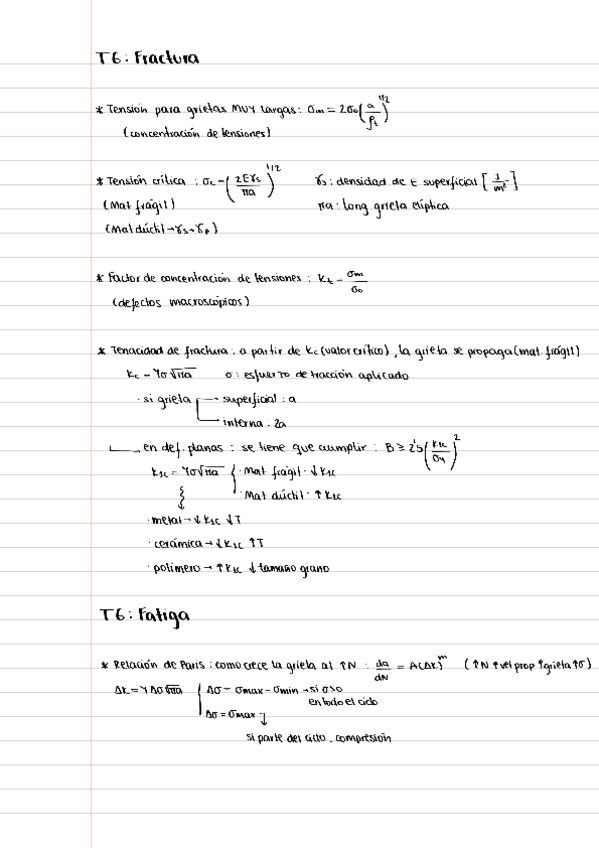 T6: Fractura
* Tensión para grietas MUY largas: σm = 2σ₀(a/ρt)^1/2
(concentración de tensiones)
* Tensión crítica: σc = (2Eγs/πa)^1/2 γs: densidad de E superficial [J/m²]
(Mat frágil) πa: long grieta elíptica
(Mat dúctil → γs+γp)
* Factor de concentración de tensiones: Kt = σm/σ₀
(defectos macroscópicos)
* Tenacidad de fractura: a partir de Kc (valor crítico), la grieta se propaga (mat. frágil)
Kc = Yσ√πa σ: esfuerzo de tracción aplicado
· si grieta superficial: a
interna: 2a
en def. planas: se tiene que cumplir: B ≥ 2'5(KIC/σy)²
KIC = Yσ√πa · Mat frágil: ↓KIC
· Mat dúctil: ↑KIC
· metal → ↓KIC ↓T
· cerámica → ↓KIC ↑T
· polímero → ↑KIC ↓tamaño grano
T6: Fatiga
* Relación de Paris: como crece la grieta al ↑N: da/dN = A(ΔK)^m (↑N ↑vel prop ↑grieta ↑σ)
ΔK = YΔσ√πa Δσ = σmax - σmin → si σ>0
en todo el ciclo
Δσ = σmax
si parte del ciclo: compresión